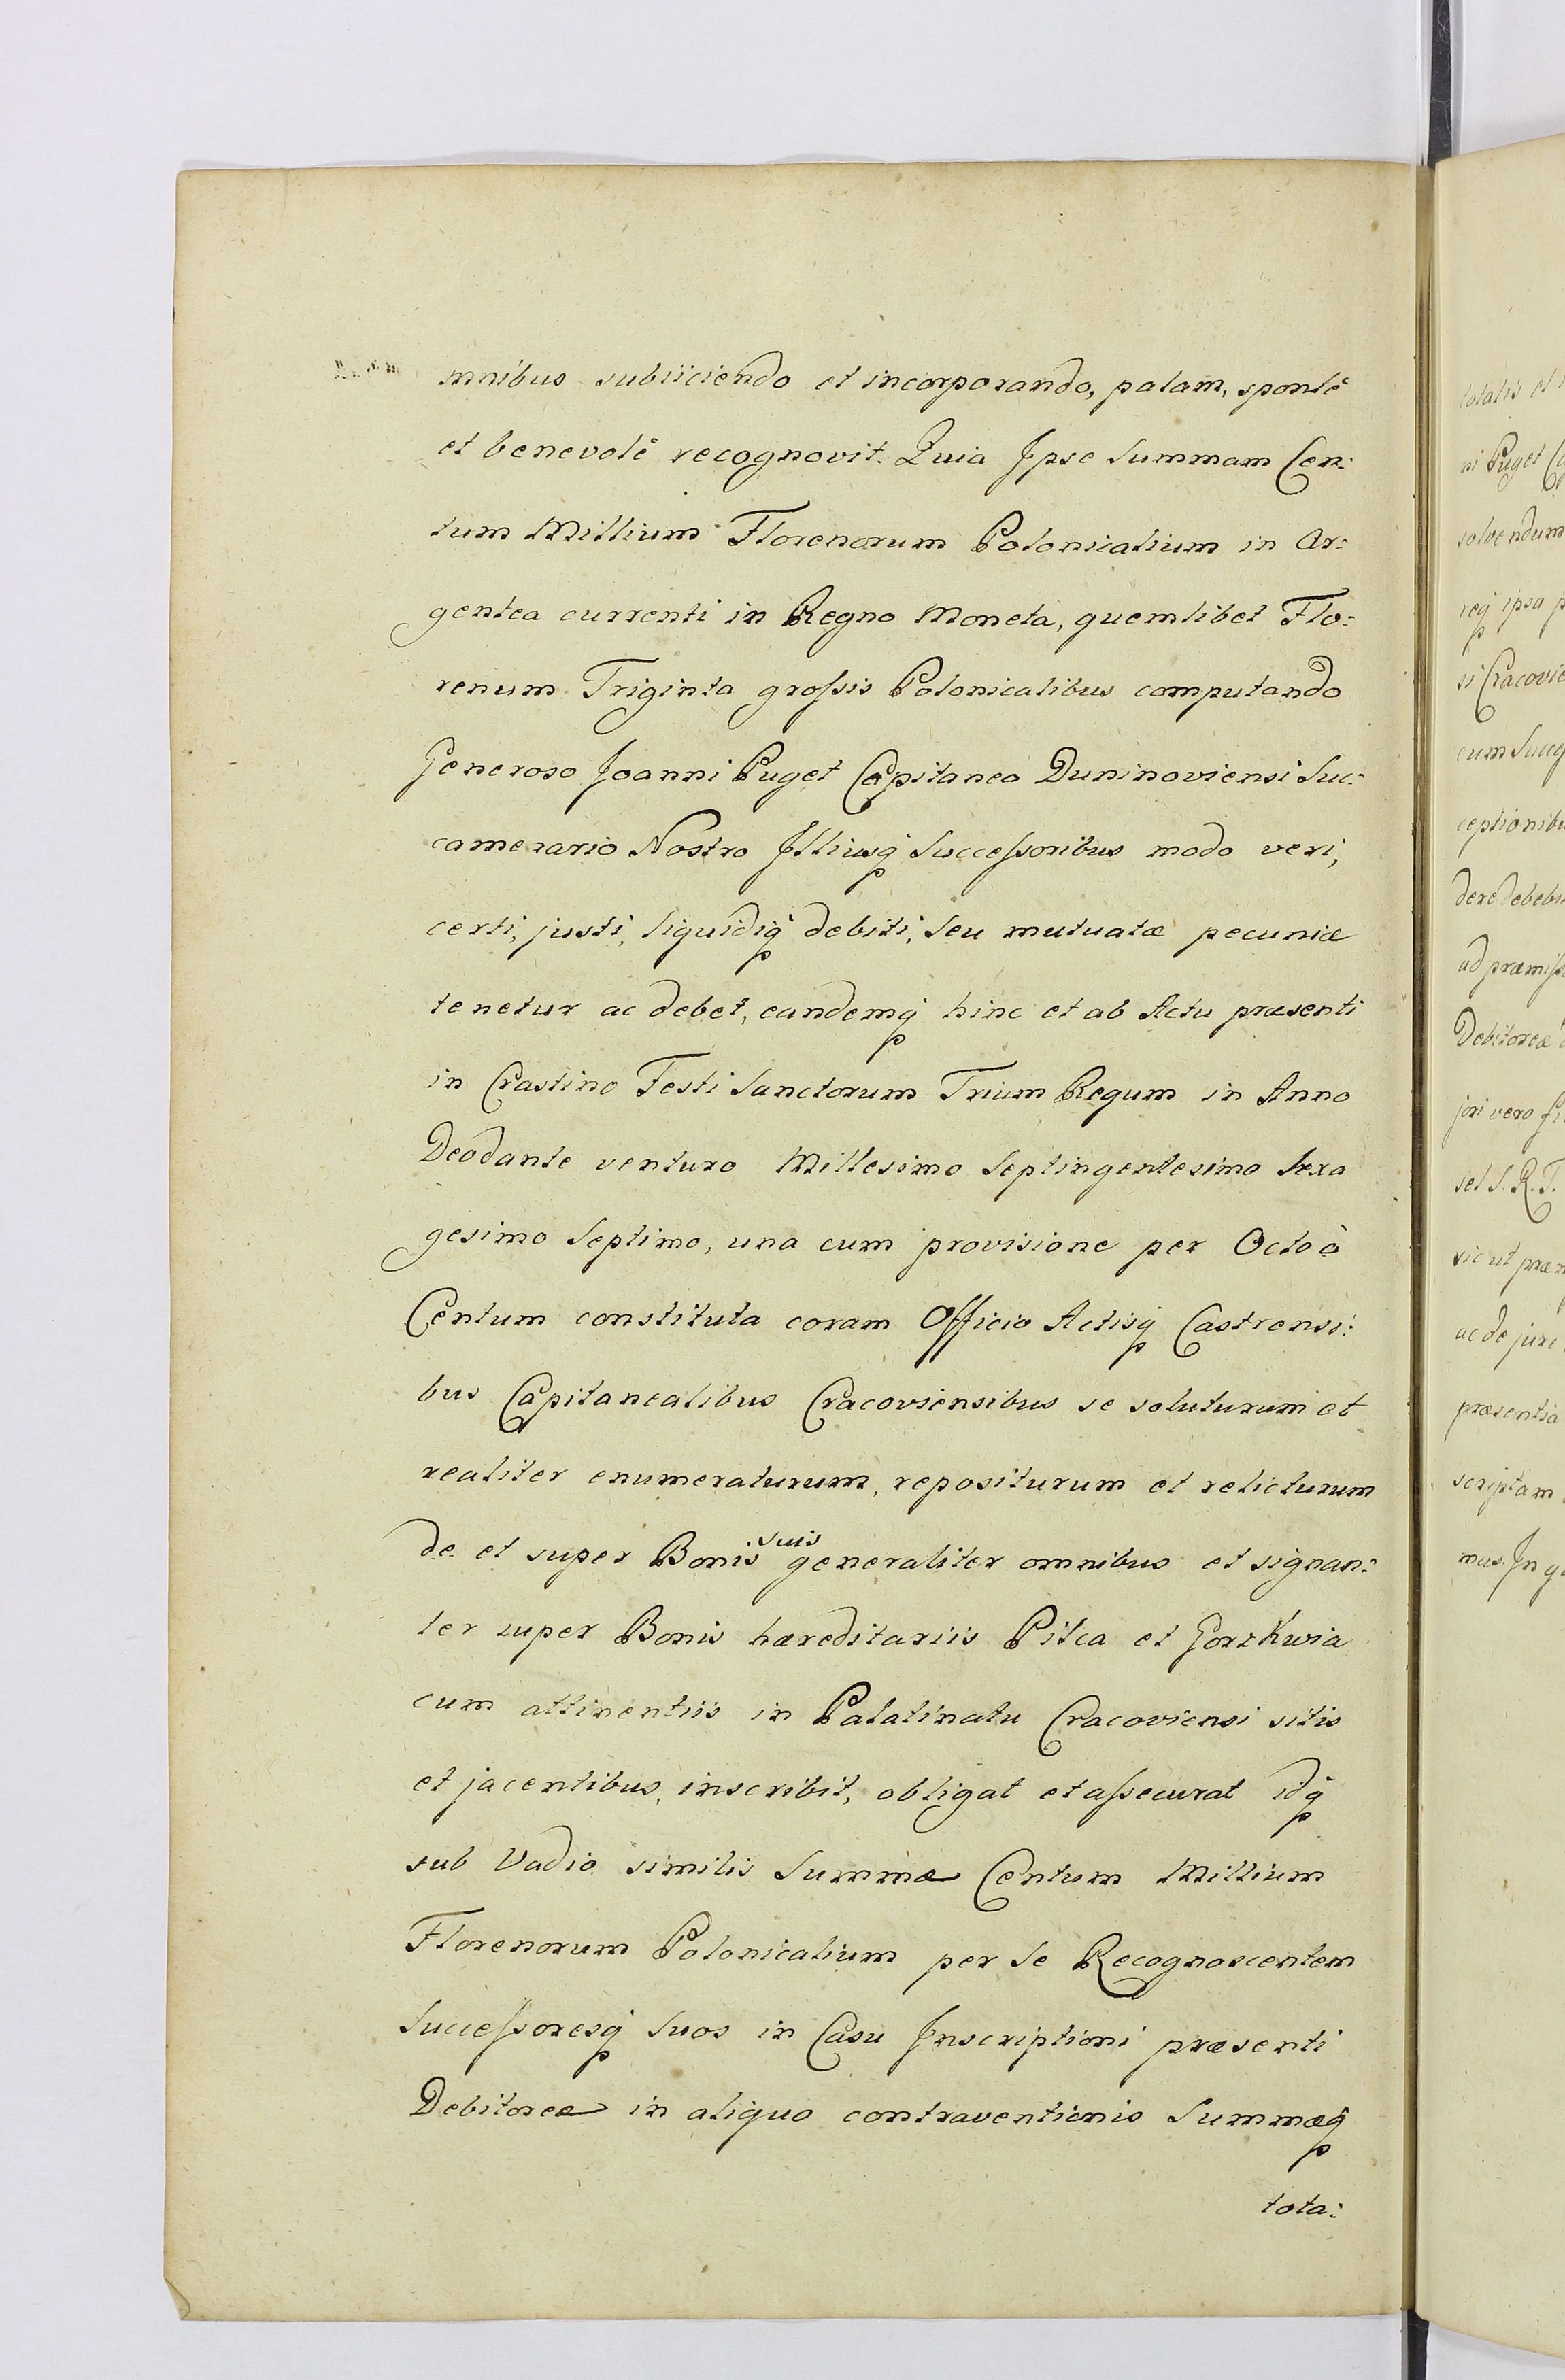 mnibus subiiciendo et incorporando, palam, spontè
et benevolè recognovit. Quia Jpse Summam Cen:
tum Millium Florenorum Polonicalium in Ar:
gentea currenti in Regno Moneta, quemlibet Flo:
renum Triginta groſsis Polonicalibus computando
Generoso Joanni Puget Capitaneo Duninoviensi Suc:
camerario Nostro Jlliusq̨ Succeſsoribus modo veri,
certi, justi, liquidiq̨ debiti, seu mutuatæ pecuniæ
tenetur ac debet, eandemq̨ hinc et ab Actu præsenti
in Crastino Festi Sanctorum Trium Regum in Anno
Deodante venturo Millesimo Septingentesimo Sexa
gesimo Septimo, una cum provisione per Octo à
Centum constituta coram Officio Actisq̨ Castrensi:
bus Capitanealibus Cracoviensibus se soluturum et
realiter enumeraturum, repositurum et relicturum
de et super Bonis suis generaliter omnibus et signan:
ter super Bonis hæreditariis Pilca et Gorzkwia
cum attinentiis in Palatinatu Cracoviensi sitis
et jacentibus, inscribit, obligat et aſsecurat idq̨
sub Vadio similis Summæ Centum Millium
Florenorum Polonicalium per se Recognoscentem
Succeſsoresq̨ Suos in Casu Jnscriptioni præsenti
Debitoreæ in aliquo contraventionis Summæq̨
tota:
totalis et
ni Puget
solvendum
req̨ ipsa
si Cracovie
cum Succ
ceptionib
dere debeb
ad præmiſs
Debitoreæ
jori vero
sel S. R. T.
sic ut præ
ac de jure
præsentia
scriptam
mus. Jn